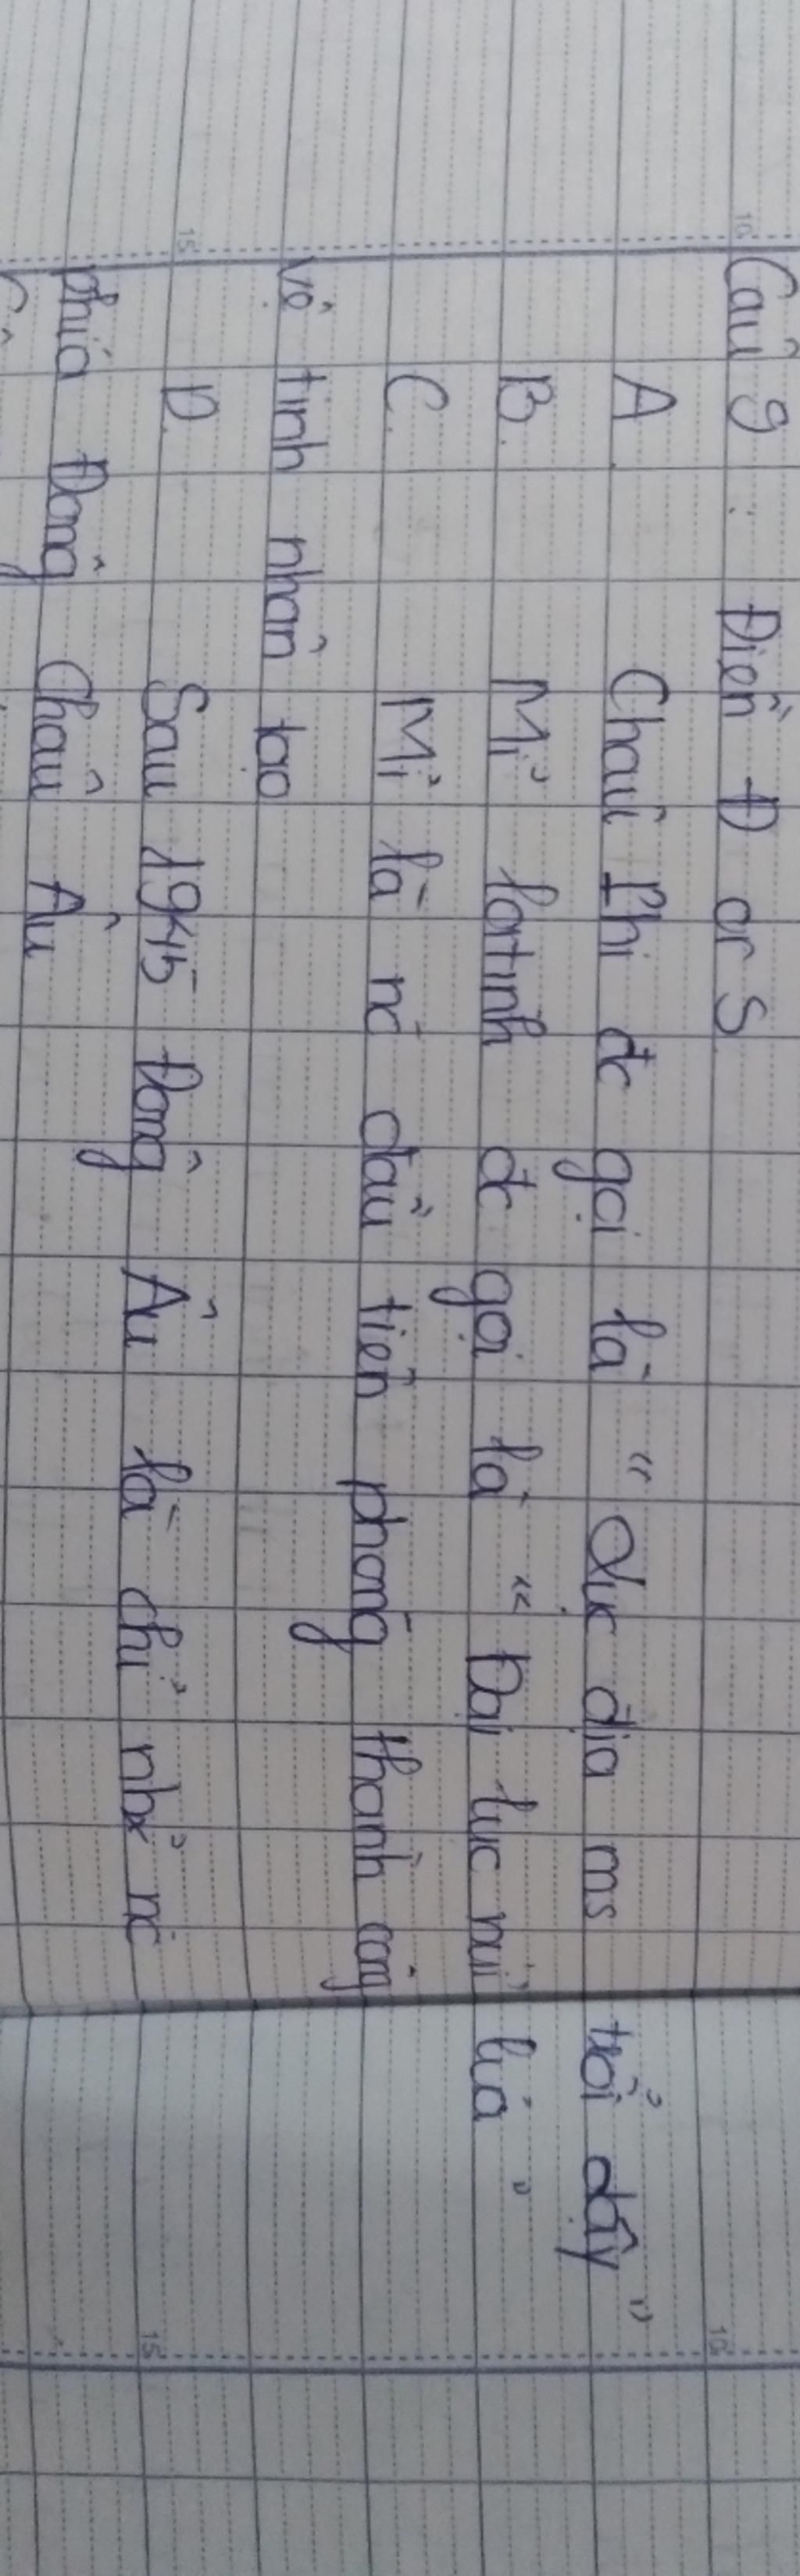 Câu 9 : Điền Đ or S
A. Châu Phi đc gọi là " Lục địa ms trỗi dậy "
B. Mĩ latinh đc gọi là " Đại lục núi lửa "
C. Mĩ là nc đầu tiên phóng thành công
vệ tinh nhân tạo
D. Sau 1945 Đông Âu là chỉ nhx nc
phía Đông Châu Âu